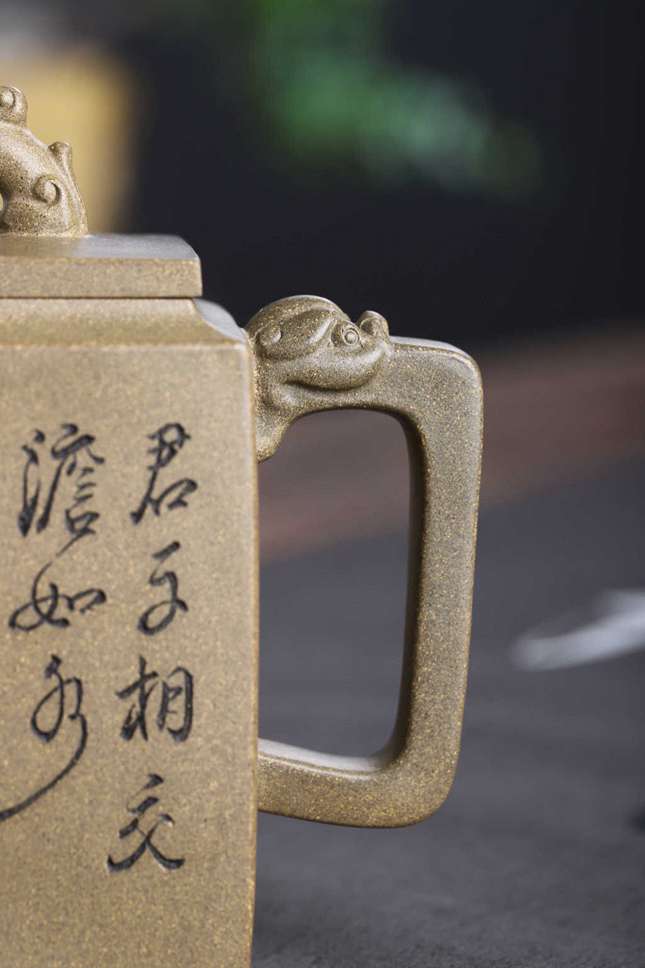 君子相交
澹如水